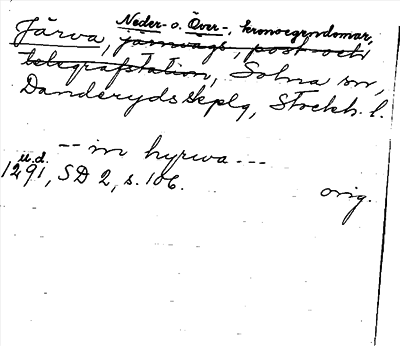 Neder- o. Över-, kronoegendomar,
Järva, järnvägs, post- och
telegrafstation, Solna sn,
Danderyds skplg, Stockh. l.
-- in hyrwa ---
u.d.
1291, SD 2, s. 106.
orig.